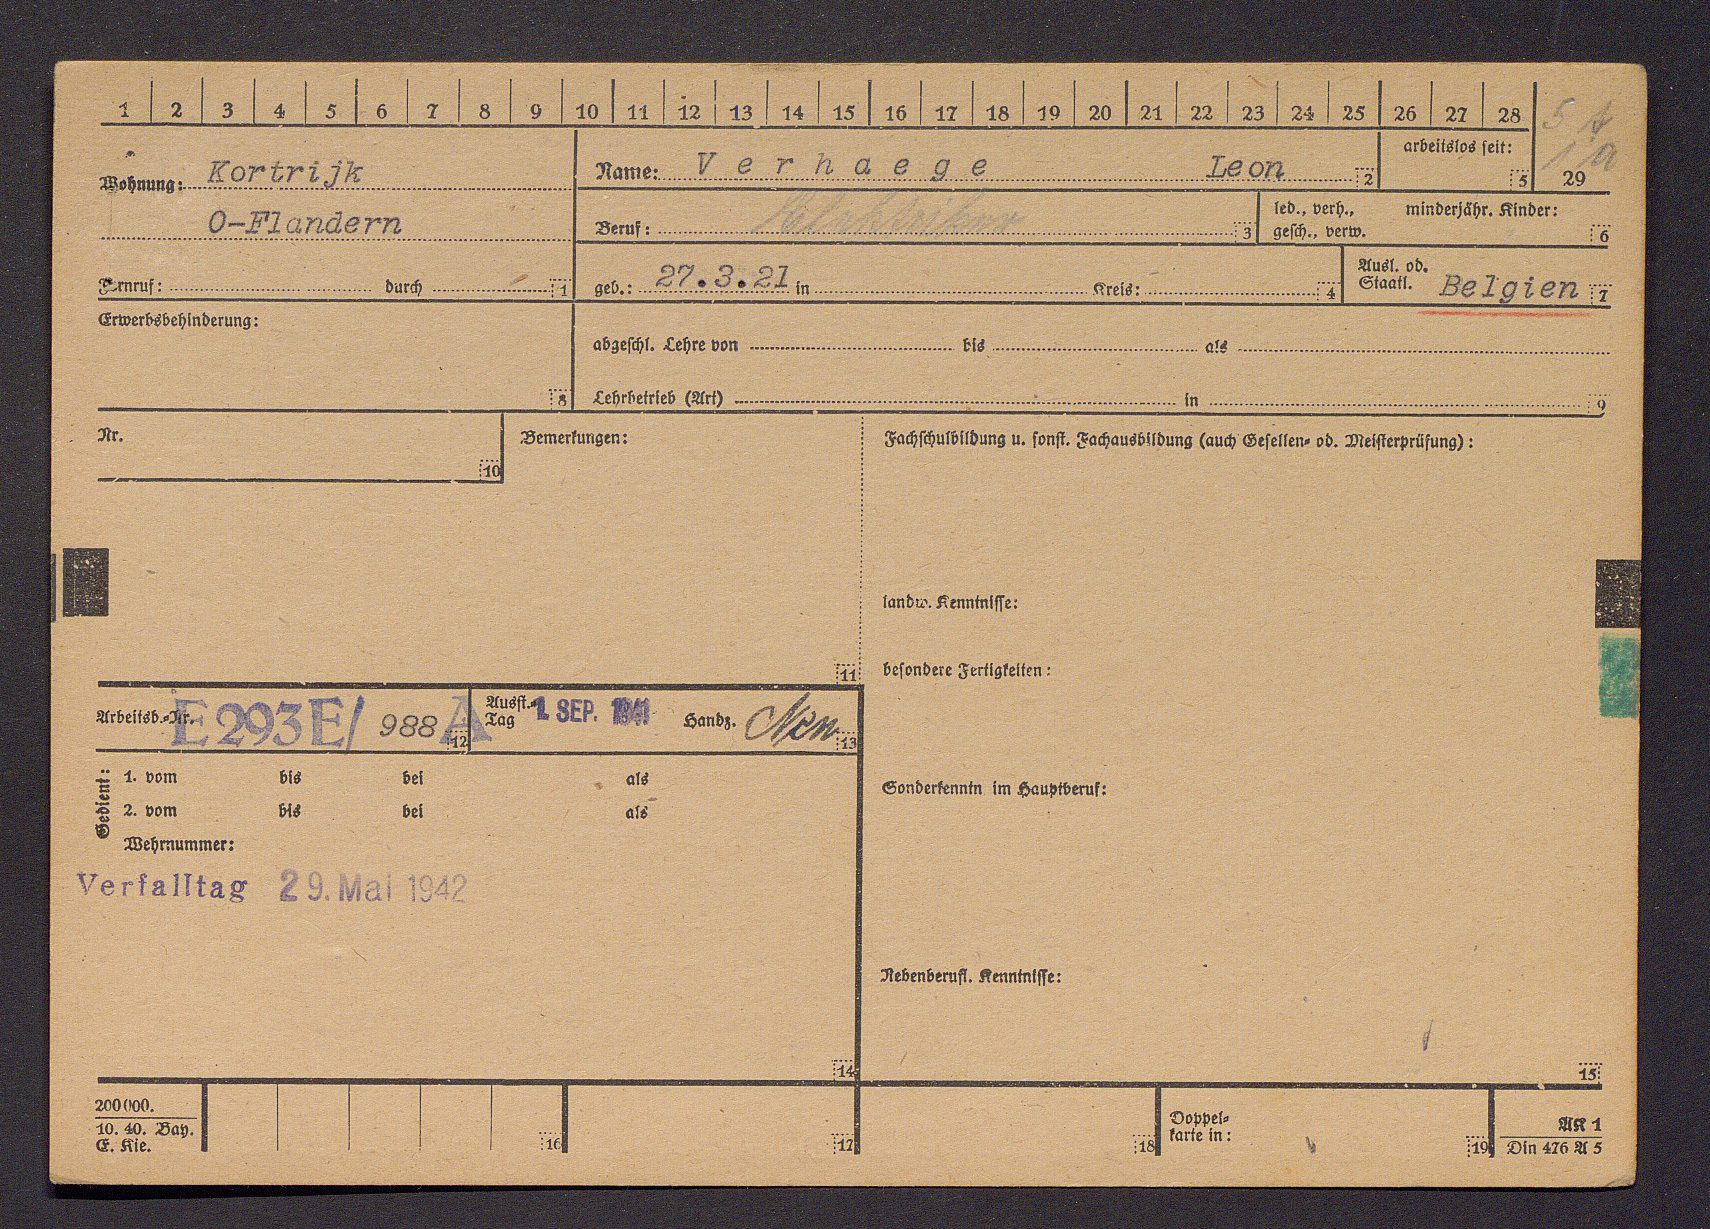 1 2 3 4 5 6 7 8 9 10 11 12 13 14 15 16 17 18 19 20 21 22 23 24 25 26 27 28
29
Wohnung: Kortrijk
O-Flandern
Fernruf: durch 1
Name: Verhaege Leon 2
arbeitslos seit: 5
Beruf: 3
led., verh., gesch., verw.
minderjähr. Kinder: 6
geb.: 27.3.21 in Kreis: 4
Ausl. od. Staatl. Belgien 7
Erwerbsbehinderung: 8
abgeschl. Lehre von bis als
Lehrbetrieb (Art) in 9
Nr. 10
Bemerkungen: 11
Fachschulbildung u. sonst. Fachausbildung (auch Gesellen- od. Meisterprüfung):
landw. Kenntnisse:
besondere Fertigkeiten:
Arbeitsb.-Nr. E 293 E/ 988 A 12
Ausst.-Tag 1. SEP. 1941 Handz. 13
Gedient:
1. vom bis bei als
2. vom bis bei als
Wehrnummer:
Verfalltag 29. Mai 1942
14
Sonderkenntn im Hauptberuf:
Nebenberufl. Kenntnisse:
15
200000.
10. 40. Bay.
E. Kie.
16 17 18
Doppel-
karte in: 19
AK 1
Din 476 A 5